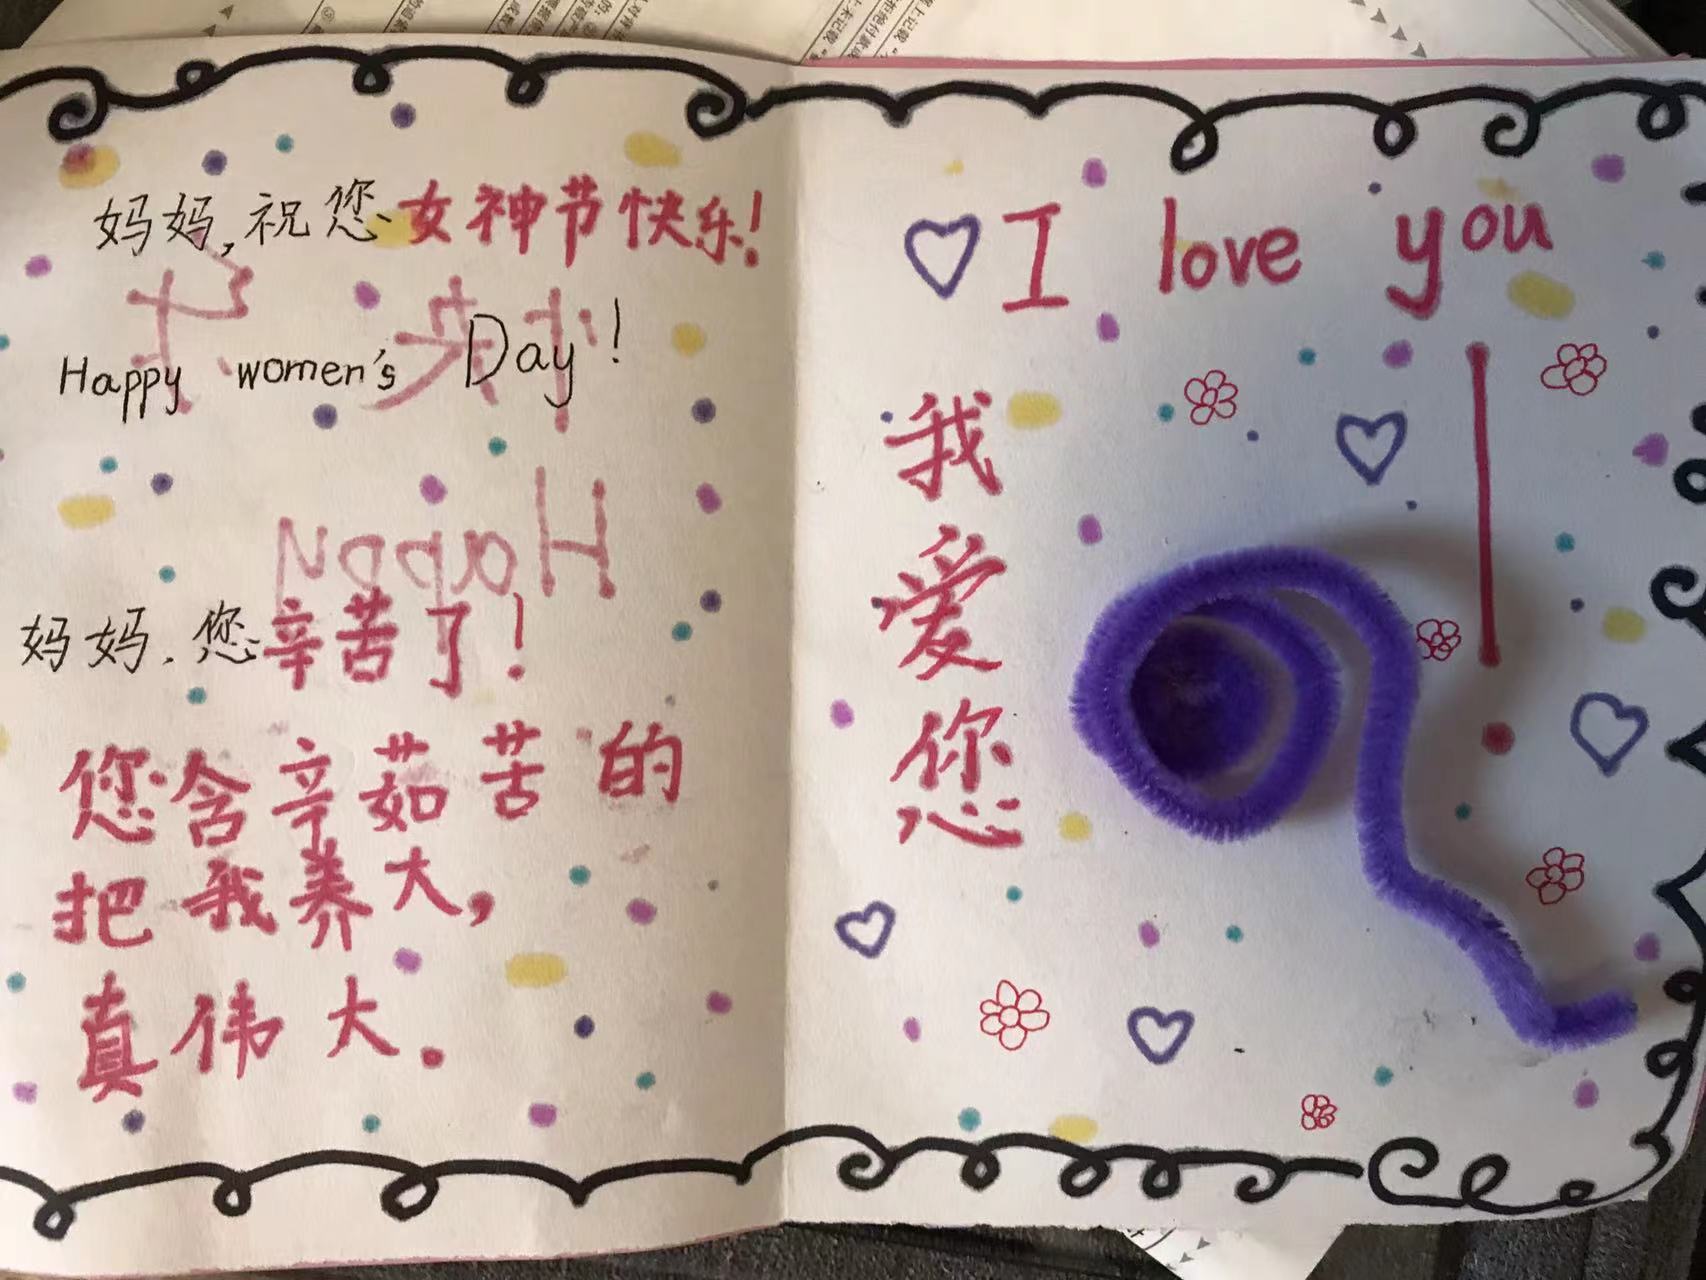 妈妈,祝您女神节快乐!
Happy women's Day!
妈妈.您辛苦了!
您含辛茹苦的
把我养大,
真伟大.
I love you
我爱您!